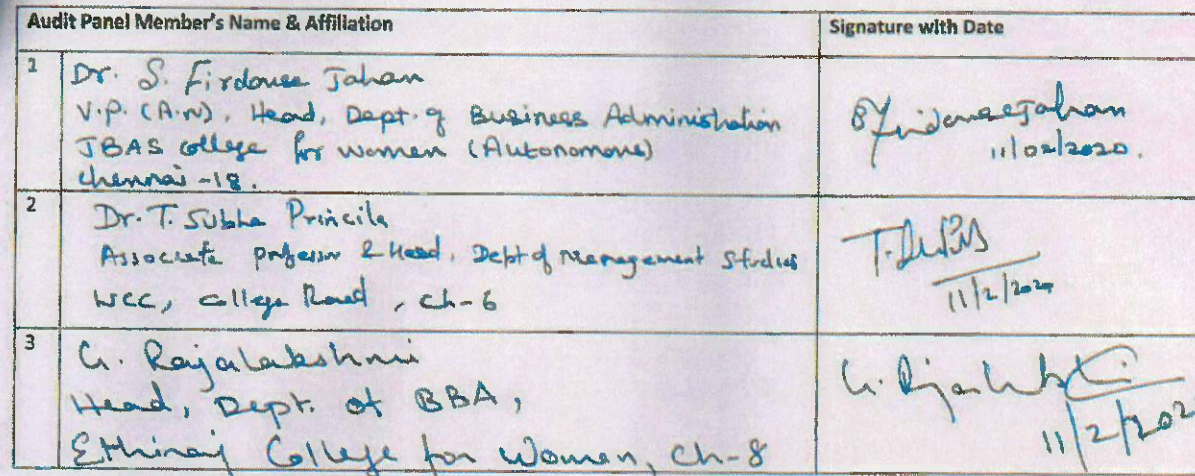 Audit Panel Member's Name & Affiliation
Signature with Date
1
Dr. S. Firdouse Jahan
V.P. (A.N), Head, Dept. of Business Administration
JBAS College for women (Autonomous)
Chennai -18.
S Firdouse Jahan
11/02/2020.
2
Dr. T. Subha Princila
Associate professor & Head, Dept of Management Studies
WCC, College Road, Ch-6
11/2/2020
3
G. Rajalakshmi
Head, Dept. of BBA,
Ethiraj College for Women, Ch-8
G. Rajalakshmi
11/2/202